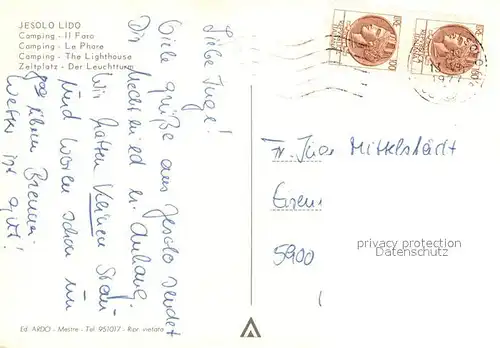 JESOLO LIDO
Camping - Il Faro
Camping - Le Phare
Camping - The Lighthouse
Zeltplatz - Der Leuchtturm
Liebe Inge!
Viele Grüße aus Jesolo sendet
Dir Mechthild u.
Wir hatten keinen Stau
und waren schon um
über Brenner
Wetter ist gut!
Ed. ARDO - Mestre - Tel. 951017 - Ripr. vietata
100
100
1977
Fr. Inge Mittelstädt
5900
privacy protection
Datenschutz